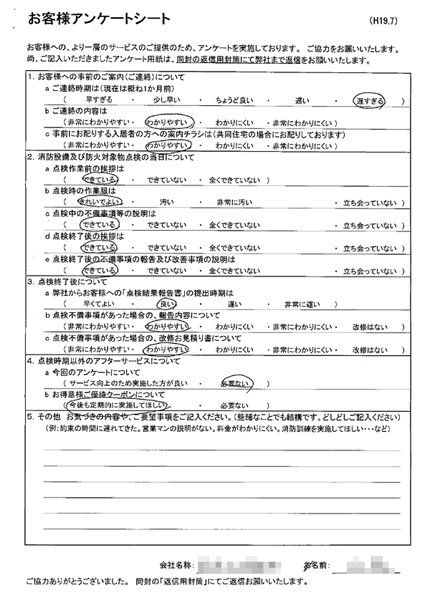 お客様アンケートシート (H19.7)
お客様への、より一層のサービスのご提供のため、アンケートを実施しております。 ご協力をお願いいたします。
尚、ご記入いただきましたアンケート用紙は、同封の返信用封筒にて弊社まで返信をお願いいたします。
1. お客様への事前のご案内(ご連絡)について
a ご連絡時期は(現在は概ね1か月前)
( 早すぎる ・ 少し早い ・ ちょうど良い ・ 遅い ・ 遅すぎる )
b ご連絡の内容は
(非常にわかりやすい ・ わかりやすい ・ わかりにくい ・ 非常にわかりにくい)
c 事前にお配りする入居者の方への案内チラシは(共同住宅の場合にお配りしております)
(非常にわかりやすい ・ わかりやすい ・ わかりにくい ・ 非常にわかりにくい)
2. 消防設備及び防火対象物点検の当日について
a 点検作業前の挨拶は
( できている ・ できていない ・ 全くできていない )
b 点検時の作業服は
( きれいでよい ・ 汚い ・ 非常に汚い ・ 立ち会っていない )
c 点検中の不備事項等の説明は
( できている ・ できていない ・ 全くできていない ・ 立ち会っていない )
d 点検終了後の挨拶は
( できている ・ できていない ・ 全くできていない ・ 立ち会っていない )
e 点検終了後の不備事項の報告及び改善事項の説明は
( できている ・ できていない ・ 全くできていない ・ 立ち会っていない )
3. 点検終了後について
a 弊社からお客様への「点検結果報告書」の提出時期は
( 早くてよい ・ 良い ・ 遅い ・ 非常に遅い )
b 点検不備事項があった場合の、報告内容について
(非常にわかりやすい ・ わかりやすい ・ わかりにくい ・ 非常にわかりにくい・ 改修はない )
c 点検不備事項があった場合の、改修お見積り書について
(非常にわかりやすい ・ わかりやすい ・ わかりにくい ・ 非常にわかりにくい・ 改修はない )
4. 点検時期以外のアフターサービスについて
a 今回のアンケートについて
(サービス向上のため実施した方が良い ・ 必要ない )
b お得意様ご優待クーポンについて
(今後も定期的に実施してほしい ・ 必要ない )
5. その他 お気づきの内容や、ご要望事項をご記入ください。(些細なことでも結構です。どしどしご記入ください)
(例:約束の時間に遅れてきた。営業マンの説明がない。料金がわかりにくい。消防訓練を実施してほしい・・・など)
会社名称: 名前:
ご協力ありがとうございました。 同封の「返信用封筒」にてご返信お願いいたします。